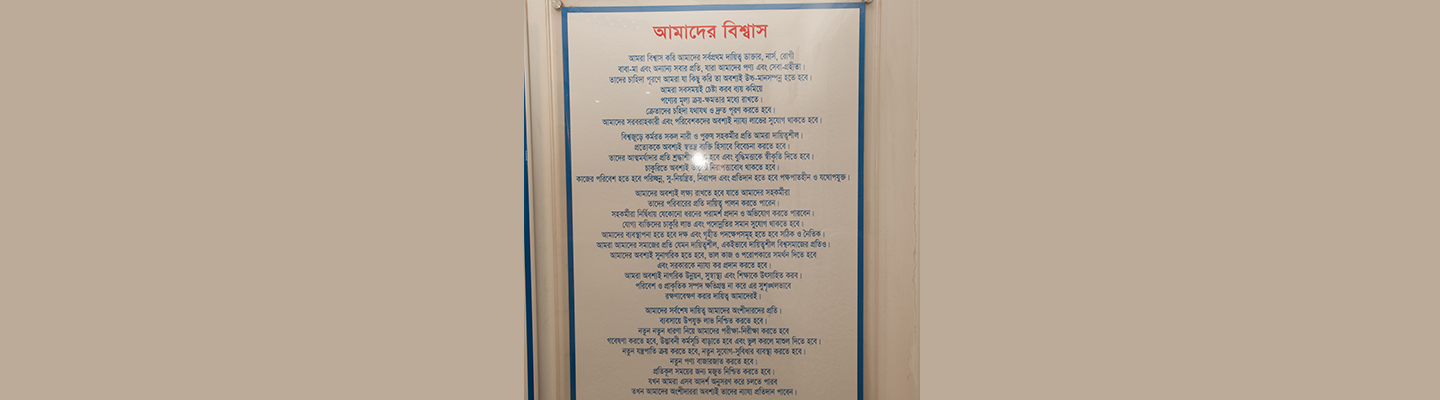 আমাদের বিশ্বাস
আমরা বিশ্বাস করি আমাদের সর্বপ্রথম দায়িত্ব ডাক্তার, নার্স, রোগী
বাবা-মা এবং অন্যান্য সবার প্রতি, যারা আমাদের পণ্য এবং সেবা-গ্রহীতা।
তাদের চাহিদা পূরণে আমরা যা কিছু করি তা অবশ্যই উচ্চ-মানসম্পন্ন হতে হবে।
আমরা সবসময়ই চেষ্টা করব ব্যয় কমিয়ে
পণ্যের মূল্য ক্রয়-ক্ষমতার মধ্যে রাখতে।
ক্রেতাদের চাহিদা যথাযথ ও দ্রুত পূরণ করতে হবে।
আমাদের সরবরাহকারী এবং পরিবেশকদের অবশ্যই ন্যায্য লাভের সুযোগ থাকতে হবে।
বিশ্বজুড়ে কর্মরত সকল নারী ও পুরুষ সহকর্মীর প্রতি আমরা দায়িত্বশীল।
প্রত্যেককে অবশ্যই স্বতন্ত্র ব্যক্তি হিসাবে বিবেচনা করতে হবে।
তাদের আত্মমর্যাদার প্রতি হবে এবং বুদ্ধিমত্তাকে স্বীকৃতি দিতে হবে।
চাকুরিতে অবশ্যই নিরাপত্তাবোধ থাকতে হবে।
কাজের পরিবেশ হতে হবে পরিচ্ছন্ন, সু-নিয়ন্ত্রিত, নিরাপদ এবং প্রতিদান হতে হবে পক্ষপাতহীন ও যথোপযুক্ত।
আমাদের অবশ্যই লক্ষ্য রাখতে হবে যাতে আমাদের সহকর্মীরা
তাদের পরিবারের প্রতি দায়িত্ব পালন করতে পারেন।
সহকর্মীরা নির্দ্বিধায় যেকোনো ধরনের পরামর্শ প্রদান ও অভিযোগ করতে পারবেন।
যোগ্য ব্যক্তিদের চাকুরি লাভ এবং পদোন্নতির সমান সুযোগ থাকতে হবে।
আমাদের ব্যবস্থাপনা হতে হবে দক্ষ এবং গৃহীত পদক্ষেপসমূহ হতে হবে সঠিক ও নৈতিক।
আমরা আমাদের সমাজের প্রতি যেমন দায়িত্বশীল, একইভাবে দায়িত্বশীল বিশ্বসমাজের প্রতিও।
আমাদের অবশ্যই সুনাগরিক হতে হবে, ভাল কাজ ও পরোপকারে সমর্থন দিতে হবে
এবং সরকারকে ন্যায্য কর প্রদান করতে হবে।
আমরা অবশ্যই নাগরিক উন্নয়ন, সুস্বাস্থ্য এবং শিক্ষাকে উৎসাহিত করব।
পরিবেশ ও প্রাকৃতিক সম্পদ ক্ষতিগ্রস্ত না করে এর সুশৃঙ্খলভাবে
রক্ষণাবেক্ষণ করার দায়িত্ব আমাদেরই।
আমাদের সর্বশেষ দায়িত্ব আমাদের অংশীদারদের প্রতি।
ব্যবসায়ে উপযুক্ত লাভ নিশ্চিত করতে হবে।
নতুন নতুন ধারণা নিয়ে আমাদের পরীক্ষা-নিরীক্ষা করতে হবে
গবেষণা করতে হবে, উদ্ভাবনী কর্মসূচি বাড়াতে হবে এবং ভুল করলে মাশুল দিতে হবে।
নতুন যন্ত্রপাতি ক্রয় করতে হবে, নতুন সুযোগ-সুবিধার ব্যবস্থা করতে হবে।
নতুন পণ্য বাজারজাত করতে হবে।
প্রতিকূল সময়ের জন্য মজুত নিশ্চিত করতে হবে।
যখন আমরা এসব আদর্শ অনুসরণ করে চলতে পারব
তখন আমাদের অংশীদাররা অবশ্যই তাদের ন্যায্য প্রতিদান পাবেন।